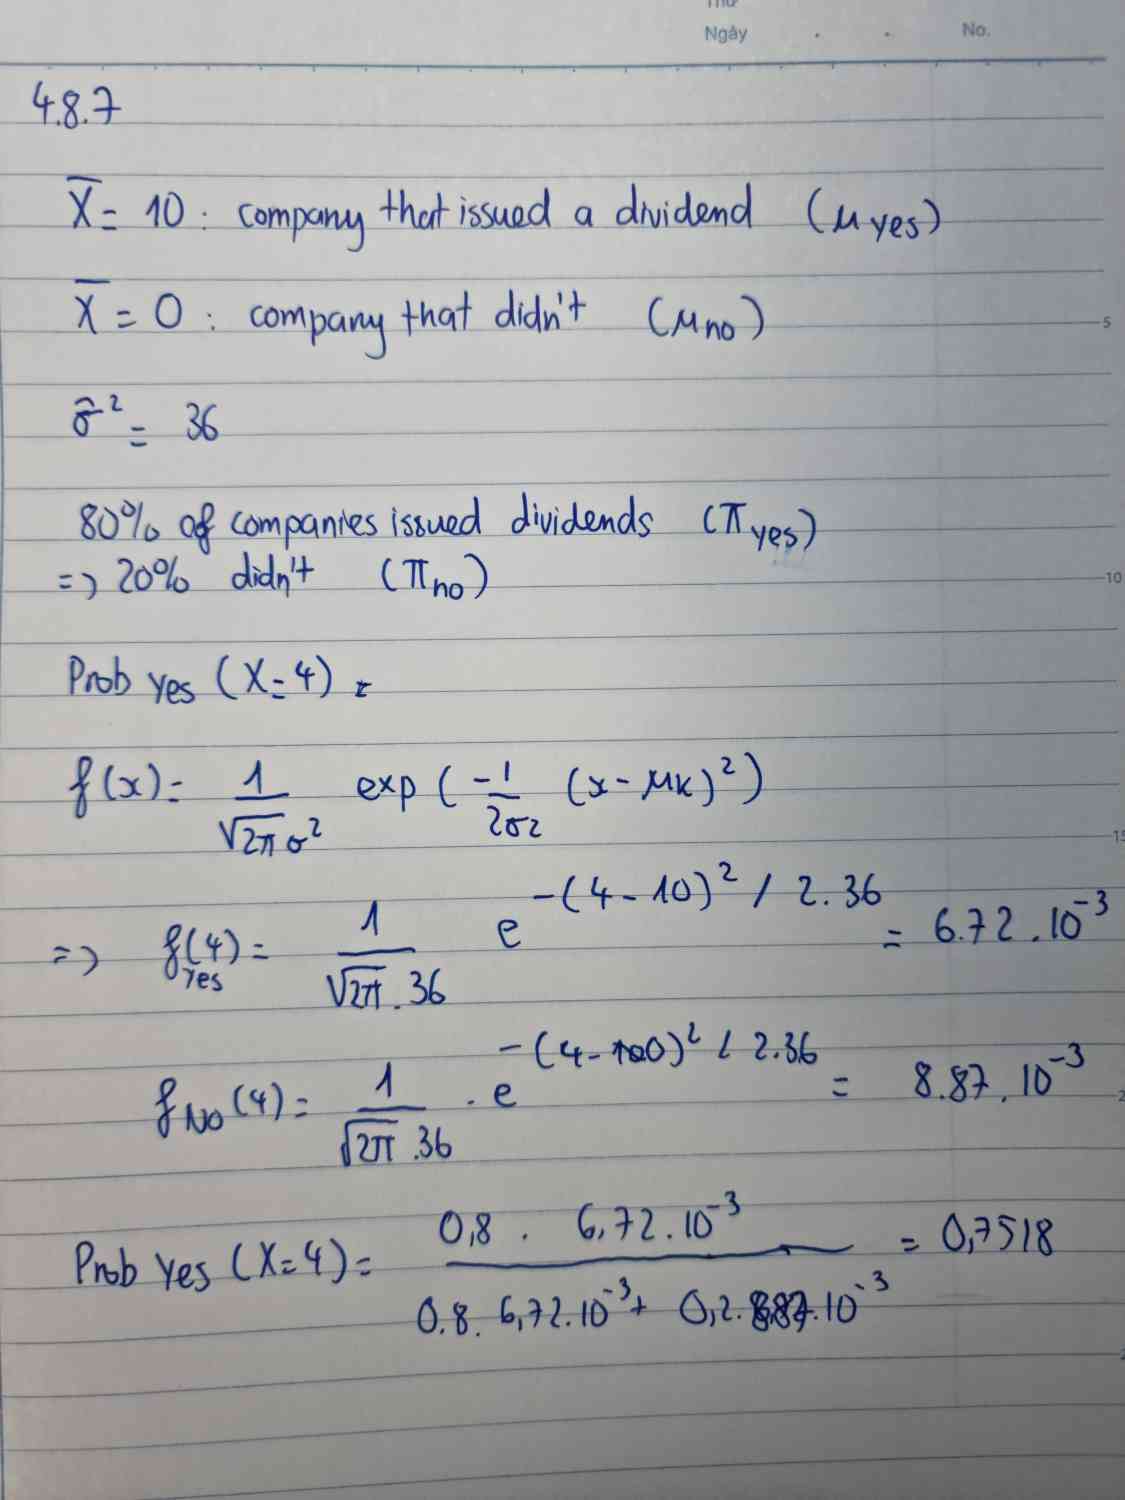 Thứ
Ngày . . No.
4.8.7
X̄ = 10 : company that issued a dividend (μ yes)
X̄ = 0 : company that didn't (μ no)
5
σ̂² = 36
80% of companies issued dividends (π yes)
=> 20% didn't (π no)
10
Prob yes (X=4) =
f(x) = 1/(√2π σ²) exp (-1/2σ2 (x - μk)²)
15
=> f Yes (4) = 1/(√2π . 36) e^(-(4-10)² / 2.36) = 6.72 . 10⁻³
f No (4) = 1/(√2π . 36) . e^(-(4-0)² / 2.36) = 8.87 . 10⁻³
Prob yes (X=4) = (0,8 . 6,72 . 10⁻³)/(0.8 . 6,72 . 10⁻³ + 0,2 . 8,87 . 10⁻³) = 0,7518